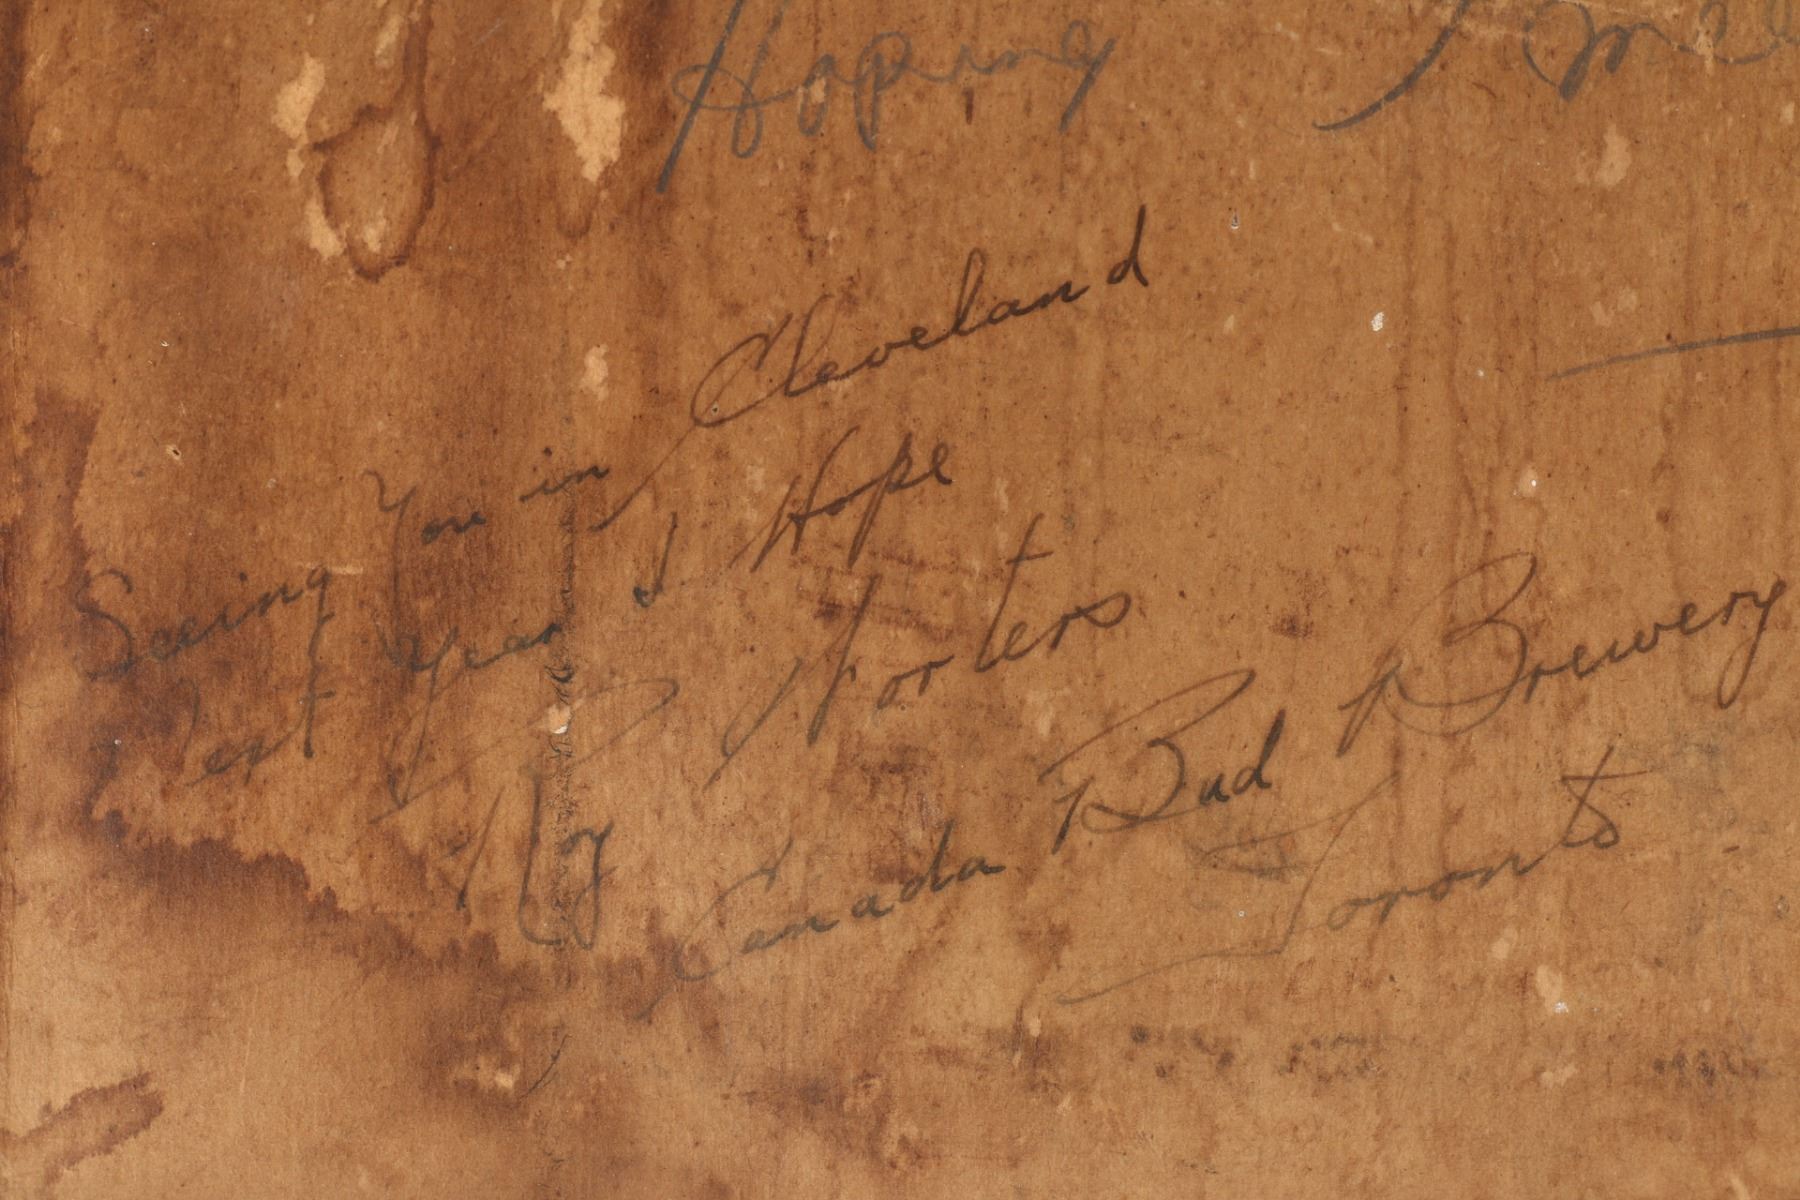 Hoping I
Seeing You in Cleveland
Next Year I Hope
Roy Worters
Canada Bud Brewery
Toronto